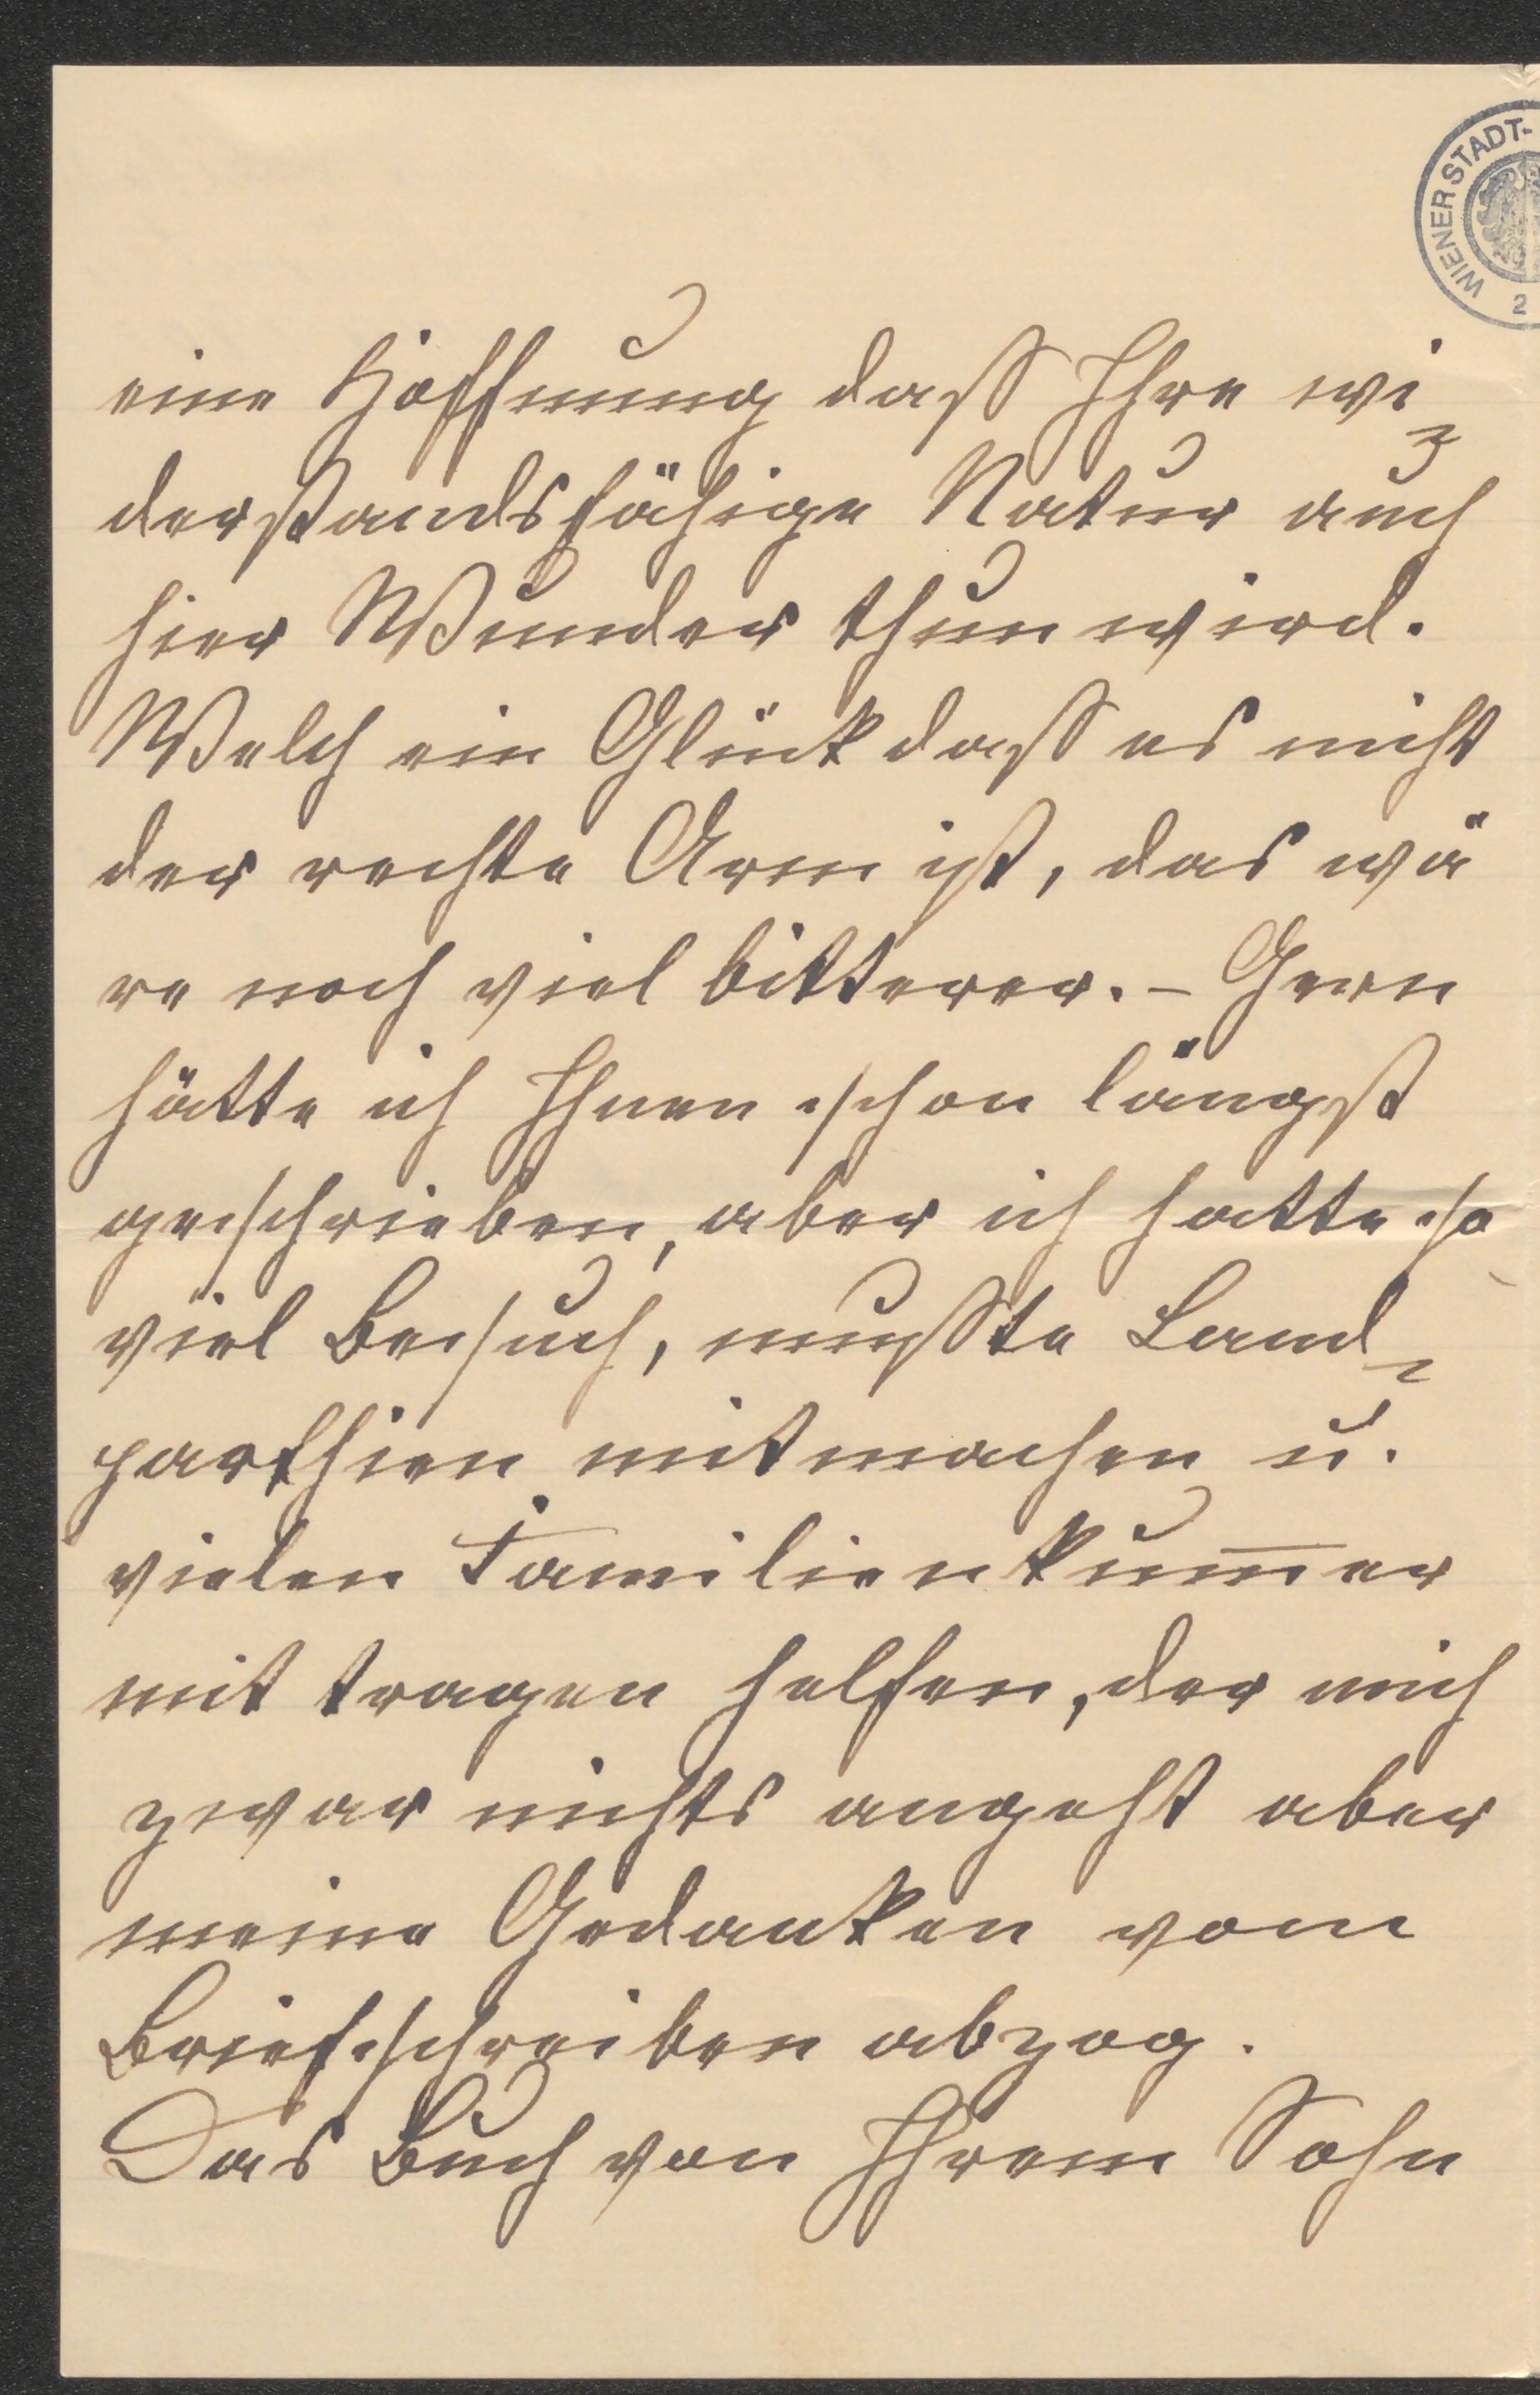 WIENER STADT-
2
eine Hoffnung daß Ihre wi-
derstandsfähige Natur auch
hier Wunder thun wird.
Welch ein Glück daß es nicht
der rechte Arm ist, das wä
re noch viel bitterer. – Gern
hätte ich Ihnen schon längst
geschrieben, aber ich hatte so
viel Besuch, mußte Land-
parthien mitmachen u.
vielen Familienkum̅er
mit tragen helfen, der mich
zwar nichts angeht aber
meine Gedanken vom
Briefschreiben abzog.
Das Buch von Ihrem Sohn